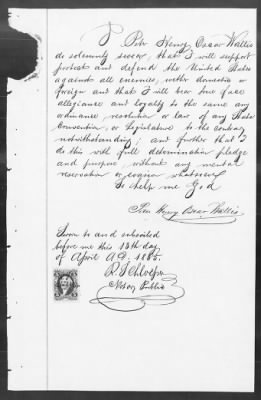 I Peter Henry Oscar Wallis
do solemnly swear that I will support
protect and defend the United States
against all enemies, wether domestic or
foreign and that I will bear true faee
allegiance and loyalty to the same any
ordinance, resolution or law of any State
Convention, or Legislature to the contrary
notwithstanding; and further that I
do this with full determination pledge
and purpose, without any mental
reservation or evasion whatsoever
So help me God
Peter Henry Oscar Wallis
Sworn to and subscribed
before me this 13th day
of April A.D. 1865.
Notary Public